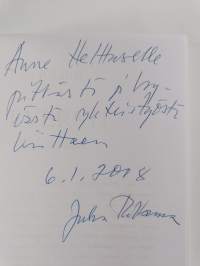 Anne Hettuselle
pitkästä ja hy-
västä yhteistyöstä
kiittaen
6.1.2018
Juha